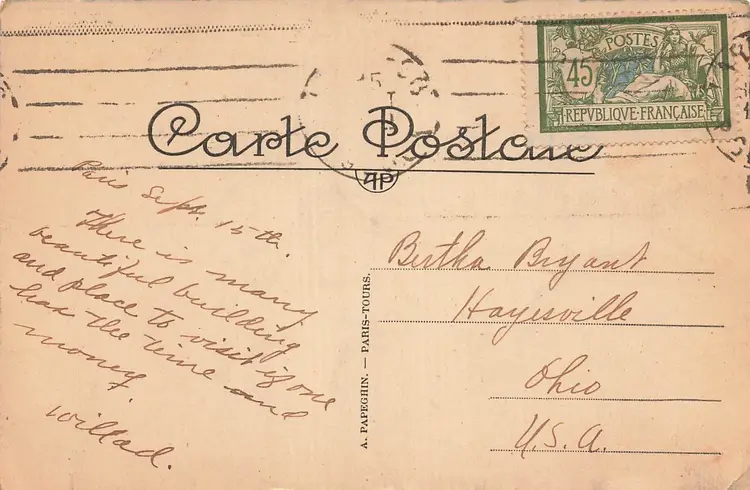 POSTES
45
REPVBLIQUE·FRANÇAISE
Carte Postale
AP
Paris Sept. 15th.
There is many
beautiful building
and place to visit if one
has the time and
money
Willad.
A. PAPEGHIN. — PARIS-TOURS.
Bertha Bryant
Hayesville
Ohio
U.S.A.